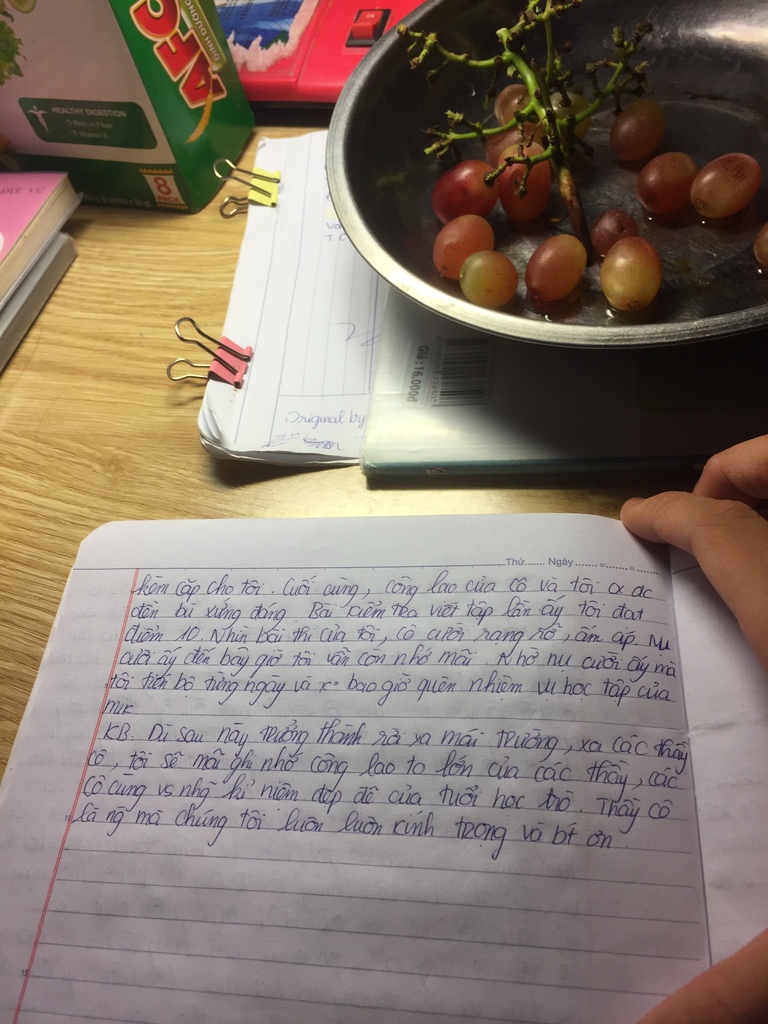 DINH DƯỠNG
AFC
HEALTHY DIGESTION
Rich in Fiber
Vitamin B
8
PACK
ĐỨC VŨ
Giá: 16.000đ
Original by
Thứ....... Ngày
kèm cặp cho tôi. Cuối cùng, công lao của cô và tôi đc
đền bù xứng đáng. Bài kiểm tra viết tập lần ấy tôi đạt
điểm 10. Nhìn bài thi của tôi, cô cười rạng rỡ, ấm áp. Nụ
cười ấy đến bây giờ tôi vẫn còn nhớ mãi. Nhờ nụ cười ấy mà
tôi tiến bộ từng ngày và k° bao giờ quên nhiệm vụ học tập của
mk.
KB. Dù sau này trưởng thành rời xa mái trường, xa các thầy
cô, tôi sẽ mãi ghi nhớ công lao to lớn của các thầy, các
cô cùng vs nhg kỉ niệm đẹp đẽ của tuổi học trò. Thầy cô
là ng mà chúng tôi luôn luôn kính trọng và bt ơn.